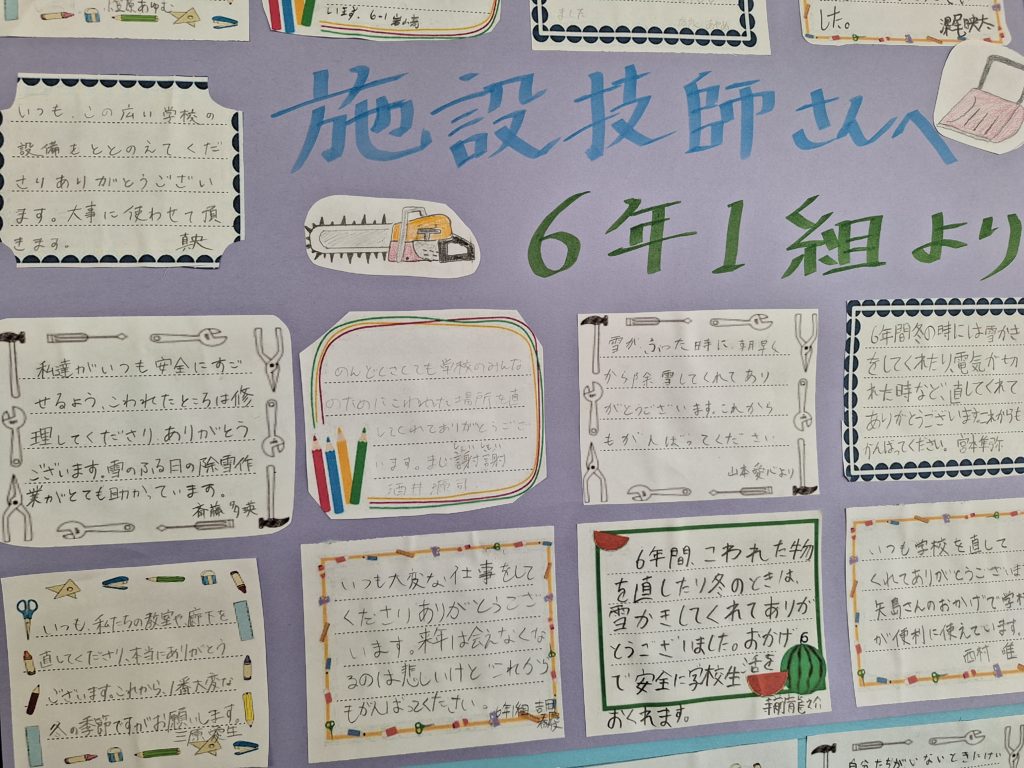 笠原あゆむ
います。6-1
ました
した。
施設技師さんへ
6年1組より
いつも、この広い学校の
設備をととのえてくだ
さりありがとうござい
ます。大事に使わせて頂
きます。 真央
私達がいつも安全にすご
せるよう、こわれたところは修
理してくださり、ありがとう
ございます。雪のふる日の除雪作
業がとても助かっています。
斉藤
のんとさくても学校のみんな
のためにこわれた場所を直
してくれてありがとうござ
います。まじ謝謝
酒井
雪が、ふった時に、朝早く
から除雪してくれてあり
がとうございます。これから
もがんばってください
山本愛心より
6年間冬の時には雪かき
をしてくれたり電気が切
れた時など、直してくれて
ありがとうございますこれからも
がんばってください。宮本
いつも、私たちの教室や廊下を
直してくださり、本当にありがとう
ございます。これから、1番大変な
冬の季節ですがお願いします。
いつも大変な仕事をして
くださりありがとうござ
います。来年は会えなくな
るのは悲しいけど これから
もがんばってください。
6年1組 吉田
6年間、こわれた物
を直したり冬のときは、
雪かきしてくれてありが
とうございました。おかげ
で安全に学校生活を6
おくれます。
いつも学校を直して
くれてありがとうございま
矢島さんのおかげで学校
が便利に使えています。
西村 唯
自分たちがいないときにけい